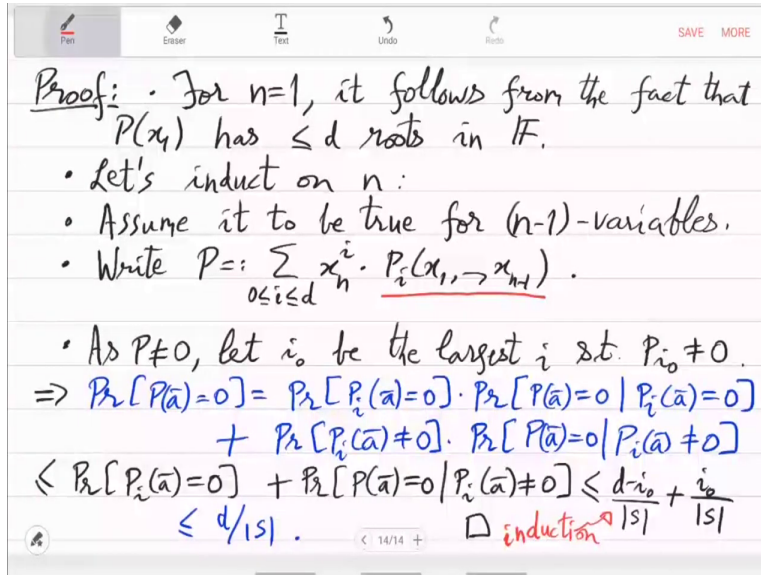 Pen Eraser Text Undo Redo SAVE MORE
Proof: · For n=1, it follows from the fact that
P(x₁) has ≤ d roots in 𝔽.
· Let's induct on n:
· Assume it to be true for (n-1)-variables.
· Write P=: ∑_{0≤i≤d} x_n^i · P_i(x₁,→x_{n-1}).
· As P≢0, let i₀ be the largest i s.t. P_{i₀} ≠ 0.
⇒ Pr[P(ā)=0] = Pr[P_i(ā)=0]· Pr[P(ā)=0 | P_i(ā)=0]
+ Pr[P_i(ā)≠0]· Pr[P(ā)=0 | P_i(ā)≠0]
≤ Pr[P_i(ā)=0] + Pr[P(ā)=0 | P_i(ā)≠0] ≤ (d-i₀)/|S| + i₀/|S|
≤ d/|S|. □ induction
< 14/14 +